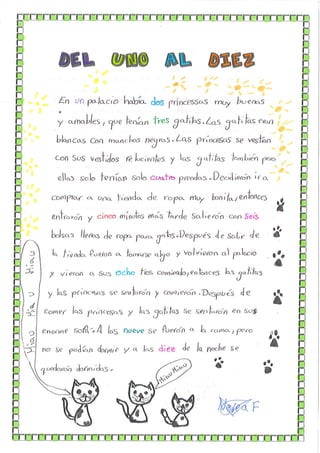 DEL UNO AL DIEZ
En un palacio había dos princesas muy buenas
y amables, que tenían tres gatitas. Las gatitas eran
blancas con manchas negras. Las princesas se vestían
con sus vestidos relucientes y las gatitas también pero
ellas solo tenían solo cuatro prendas. Decidieron ir a
comprar a una tienda de ropa muy bonita, entonces
entrarón y cinco minutos más tarde salierón con seis
bolsas llenas de ropa para gatos. Después de salir de
la tienda fueron a tomarse algo y volvieron al palacio
y vieron a sus ocho tios comiendo, entonces las gatitas
y las princesas se sentarón y comieron. Después de
comer las princesas y las gatitas se sentaron en su
enorme sofá. A las nueve se fuerón a la cama, pero
no se podían dormir y a las diez de la noche se
quedaron dormidas.
Miau Miau Miau
Miau Miau
F